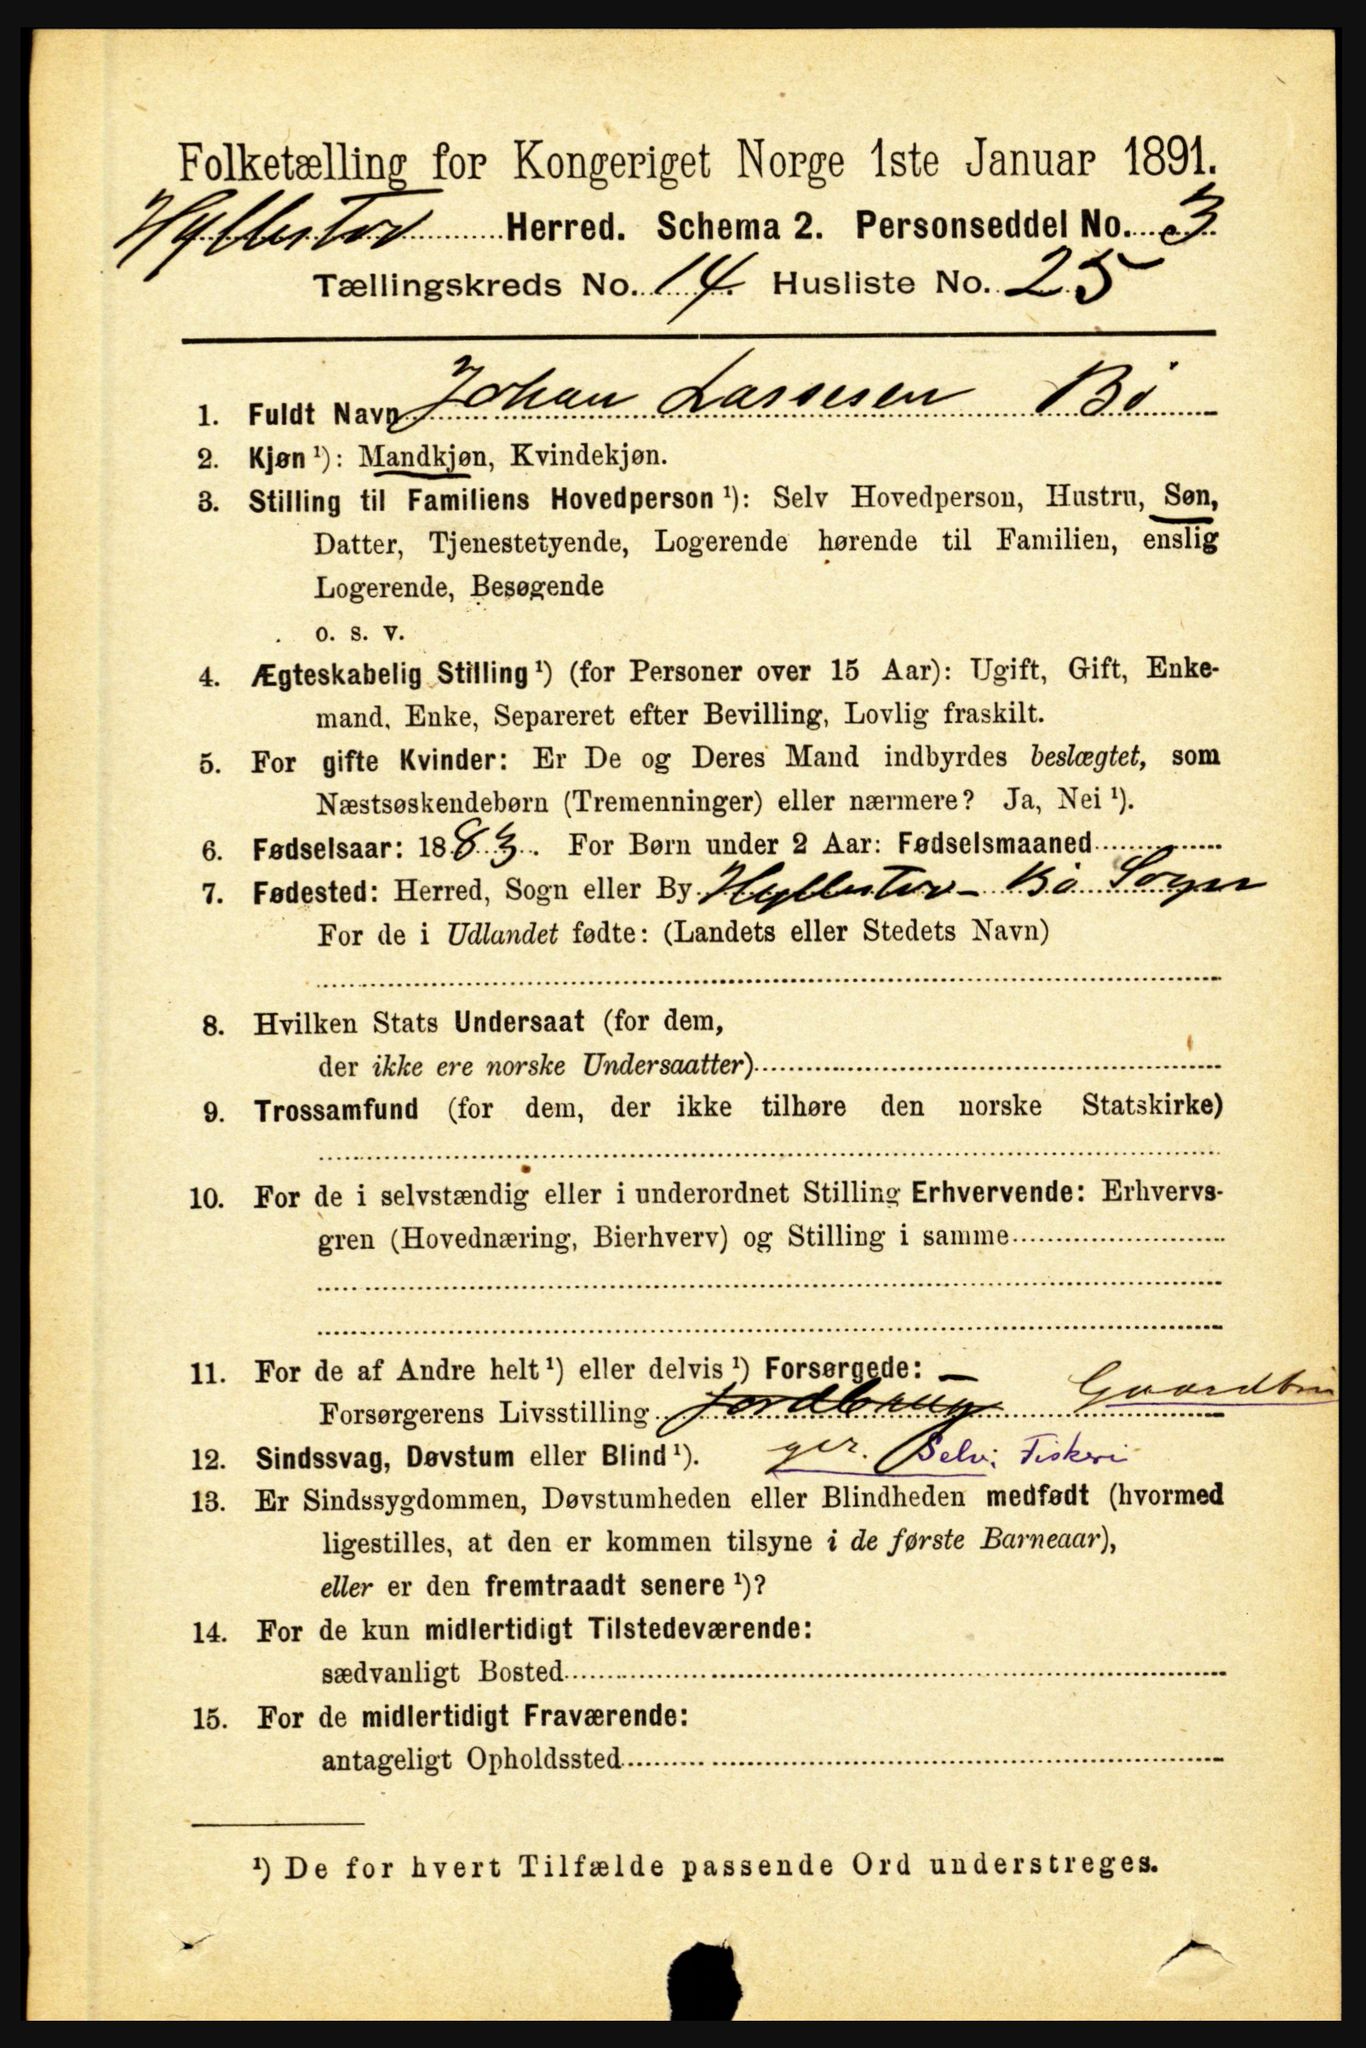 Folketælling for Kongeriget Norge 1ste Januar 1891.
Hyllestad Herred. Schema 2. Personseddel No. 3
Tællingskreds No. 14. Husliste No. 25
1. Fuldt Navn Johan Lassesen Bø
2. Kjøn ¹): Mandkjøn, Kvindekjøn.
3. Stilling til Familiens Hovedperson ¹): Selv Hovedperson, Hustru, Søn,
Datter, Tjenestetyende, Logerende hørende til Familien, enslig
Logerende, Besøgende
o. s. v.
4. Ægteskabelig Stilling ¹) (for Personer over 15 Aar): Ugift, Gift, Enke-
mand, Enke, Separeret efter Bevilling, Lovlig fraskilt.
5. For gifte Kvinder: Er De og Deres Mand indbyrdes beslægtet, som
Næstsøskendebørn (Tremenninger) eller nærmere? Ja, Nei ¹).
6. Fødselsaar: 1883. For Børn under 2 Aar: Fødselsmaaned
7. Fødested: Herred, Sogn eller By Hyllestad - Bø Sogn
For de i Udlandet fødte: (Landets eller Stedets Navn)
8. Hvilken Stats Undersaat (for dem,
der ikke ere norske Undersaatter)
9. Trossamfund (for dem, der ikke tilhøre den norske Statskirke)
10. For de i selvstændig eller i underordnet Stilling Erhvervende: Erhvervs-
gren (Hovednæring, Bierhverv) og Stilling i samme
11. For de af Andre helt ¹) eller delvis ¹) Forsørgede:
Forsørgerens Livsstilling Jordbrug Gaardbru
12. Sindssvag, Døvstum eller Blind ¹). ger. Selv: Fiskeri
13. Er Sindssygdommen, Døvstumheden eller Blindheden medfødt (hvormed
ligestilles, at den er kommen tilsyne i de første Barneaar),
eller er den fremtraadt senere ¹)?
14. For de kun midlertidigt Tilstedeværende:
sædvanligt Bosted
15. For de midlertidigt Fraværende:
antageligt Opholdssted
¹) De for hvert Tilfælde passende Ord understreges.